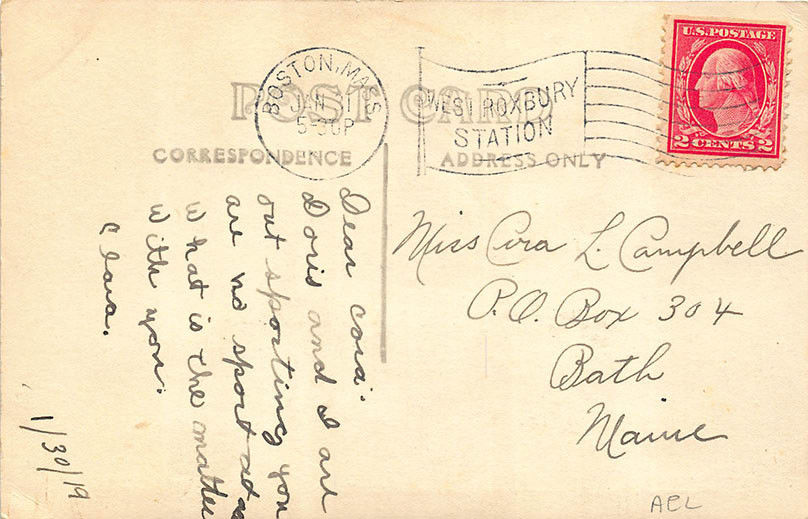 POST CARD
CORRESPONDENCE
ADDRESS ONLY
BOSTON, MASS.
JAN 31
5-30P
WEST ROXBURY
STATION
U.S. POSTAGE
2 CENTS 2
Dear Cora:
Doris and I are
out sporting you
are no sport at
What is the matter
with you.
Clara.
1/30/19
Miss Cora L. Campbell
P.O. Box 304
Bath
Maine
AEL